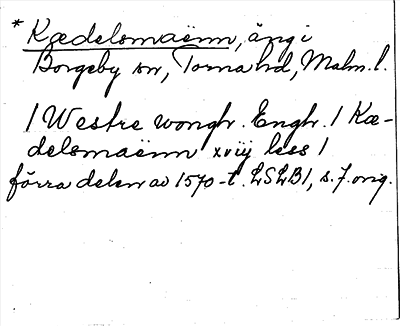 * Kædelsmaënn, äng i
Borgeby sn, Torna hd, Malm. l.
| Westre wongh. Engh. | Kæ-
delsmaënn xviij less |
förra delen av 1570-t. LSLB1, s. 7. orig.